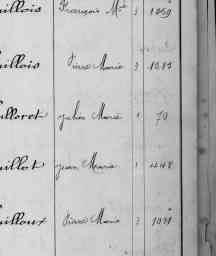 uillois François Mie 3 1259
uillois Pierre Marie 3 1287
uilloret Julien Marie 1 70
uillot Jean Marie 1 448
uilloux Pierre Marie 3 1071